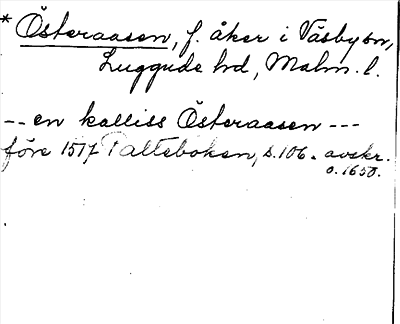 * Österaasen, f. åker i Väsby sn,
Luggude hd, Malm. l.
-- en kalliss Österaasen ---
före 1517 Palteboken, s. 106. avskr.
o. 1650.